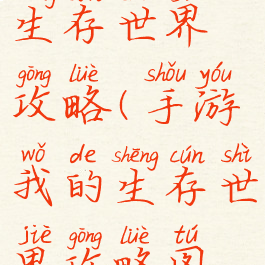 生存世界
gōng lüè shǒu yóu
攻略(手游
wǒ de shēng cún shì
我的生存世
jiè gōng lüè tú
界攻略图